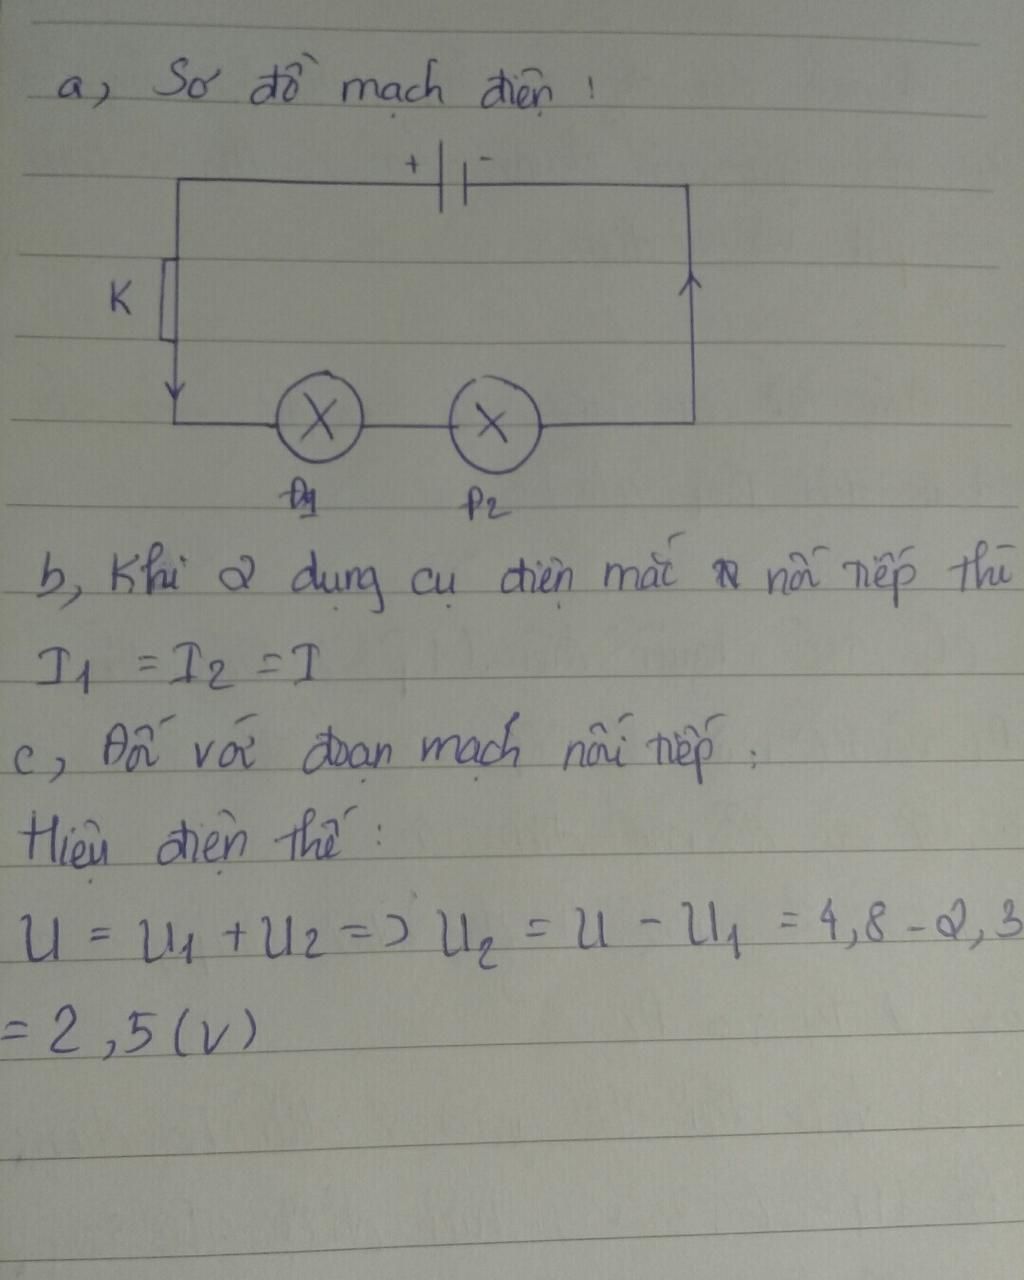 a, Sơ đồ mạch điện !
+ -
K
Đ1 Đ2
b, Khi 2 dụng cụ điện mắc nối tiếp thì
I1 = I2 = I
c, Đối với đoạn mạch nối tiếp :
Hiệu điện thế :
U = U1 + U2 => U2 = U - U1 = 4,8 - 2,3
= 2,5 (V)